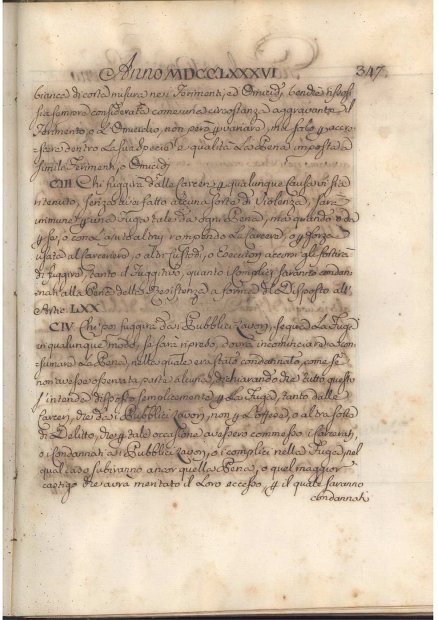 Anno MDCCLXXXVI 347.
bianca di corta misura nei Ferimenti, ed Omicidj, benche si possa
sempre considerarla come una circostanza aggravante il
Ferimento, o l'Omicidio, non però variare, ma solo accre-
scere dentro la sua specie, e qualità la Pena imposta ai
simili Ferimenti, o Omicidj
CIII. Chi fuggirà dalle Carceri qualunque Causa vi sia
ritenuto, senz'aver fatto alcuna sorte di Violenza, sarà
immune una Fuga tale da ogni Pena, ma quando o da
se, o con l'ajuto altrui rompendo le Carceri, o forza
usata al Carceriere, o altri Custodi, o Esecutori accorgli sortirà
di fuggire, tanto il Fuggitivo, quanto i Complici saranno condan-
nati alla Pena della Resistenza a forma del Disposto all'
Artic. LXX
CIV. Chi poi fuggirà dai Pubblici Lavori, segua la Fuga
in qualunque modo, se sarà ripreso, dovrà incominciare a con-
sumare la Pena, nella quale era stato condannato, come se
non avesse osservata parte alcuna, dichiarando che tutto questo
s'intende disposto semplicemente la Fuga, tanto dalle
Carceri, che dai Pubblici Lavori, non l'Offese, o altra sorta
di Delitto, che tale occasione avessero commesso i Carcerati,
o i Condannati ai Pubblici Lavori, o i complici nella Fuga, nel
qual caso subiranno ancor quella Pena, o quel maggior
castigo che avrà meritato il Loro eccesso, il quale saranno
condannati